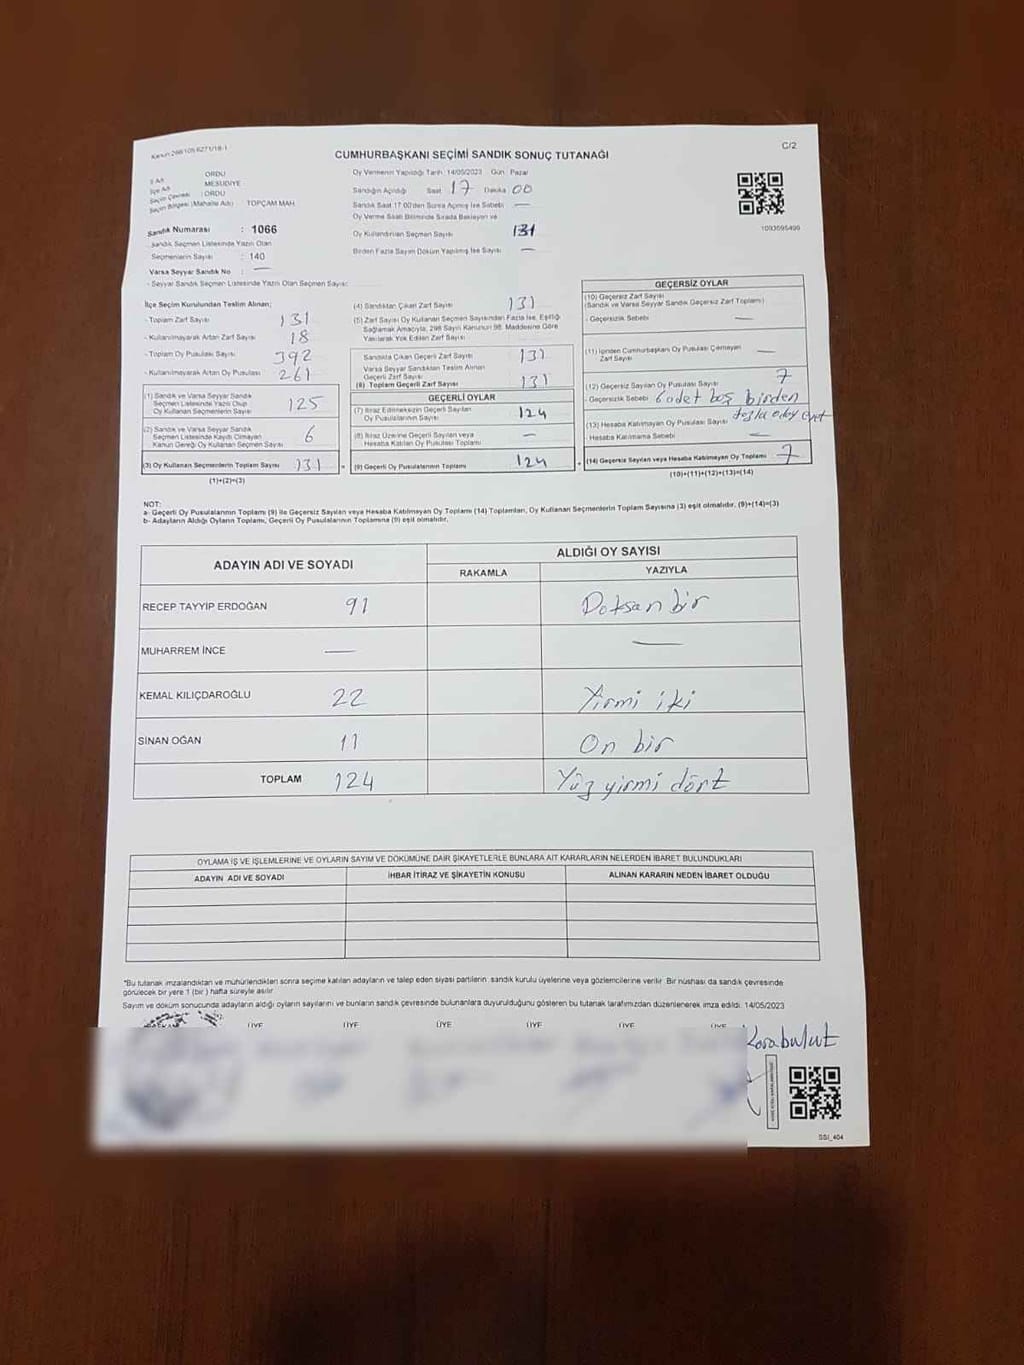 C/2
CUMHURBAŞKANI SEÇİMİ SANDIK SONUÇ TUTANAĞI
İl Adı ORDU
İlçe Adı MESUDİYE
Seçim Çevresi : ORDU
Seçim Bölgesi (Mahalle Adı) : TOPÇAM MAH.
Sandık Numarası : 1066
Sandık Seçmen Listesinde Yazılı Olan
Seçmenlerin Sayısı : 140
Varsa Seyyar Sandık No : —
- Seyyar Sandık Seçmen Listesinde Yazılı Olan Seçmen Sayısı:
Oy Vermenin Yapıldığı Tarih: 14/05/2023 Gün: Pazar
Sandığın Açıldığı Saat 17 Dakika 00
Sandık Saat 17.00'den Sonra Açılmış İse Sebebi —
Oy Verme Saati Bitiminde Sırada Bekleyen ve
Oy Kullandırılan Seçmen Sayısı 131
Birden Fazla Sayım Döküm Yapılmış İse Sayısı —
1093095499
İlçe Seçim Kurulundan Teslim Alınan;
- Toplam Zarf Sayısı 131
- Kullanılmayarak Artan Zarf Sayısı 18
- Toplam Oy Pusulası Sayısı 392
- Kullanılmayarak Artan Oy Pusulası 261
(1) Sandık ve Varsa Seyyar Sandık
Seçmen Listesinde Yazılı Olup
Oy Kullanan Seçmenlerin Sayısı 125
(2) Sandık ve Varsa Seyyar Sandık
Seçmen Listesinde Kaydı Olmayan
Kanun Gereği Oy Kullanan Seçmen Sayısı 6
(3) Oy Kullanan Seçmenlerin Toplam Sayısı 131 =
(1)+(2)=(3)
(4) Sandıktan Çıkan Zarf Sayısı 131
(5) Zarf Sayısı Oy Kullanan Seçmen Sayısından Fazla İse, Eşitliği
Sağlamak Amacıyla, 298 Sayılı Kanunun 98. Maddesine Göre
Yakılarak Yok Edilen Zarf Sayısı
Sandıkta Çıkan Geçerli Zarf Sayısı 131
Varsa Seyyar Sandıktan Teslim Alınan
Geçerli Zarf Sayısı
(6) Toplam Geçerli Zarf Sayısı 131
GEÇERLİ OYLAR
(7) İtiraz Edilmeksizin Geçerli Sayılan
Oy Pusulalarının Sayısı 124
(8) İtiraz Üzerine Geçerli Sayılan veya
Hesaba Katılan Oy Pusulası Toplamı —
(9) Geçerli Oy Pusulalarının Toplamı 124 +
GEÇERSİZ OYLAR
(10) Geçersiz Zarf Sayısı
(Sandık ve Varsa Seyyar Sandık Geçersiz Zarf Toplamı)
- Geçersizlik Sebebi —
(11) İçinden Cumhurbaşkanı Oy Pusulası Çıkmayan
Zarf Sayısı —
(12) Geçersiz Sayılan Oy Pusulası Sayısı 7
- Geçersizlik Sebebi 6 adet boş birden
fazla aday evet
(13) Hesaba Katılmayan Oy Pusulası Sayısı
Hesaba Katılmama Sebebi —
(14) Geçersiz Sayılan veya Hesaba Katılmayan Oy Toplamı 7
(10)+(11)+(12)+(13)=(14)
NOT:
a- Geçerli Oy Pusulalarının Toplamı (9) ile Geçersiz Sayılan veya Hesaba Katılmayan Oy Toplamı (14) Toplamları, Oy Kullanan Seçmenlerin Toplam Sayısına (3) eşit olmalıdır. (9)+(14)=(3)
b- Adayların Aldığı Oyların Toplamı, Geçerli Oy Pusulalarının Toplamına (9) eşit olmalıdır.
ADAYIN ADI VE SOYADI ALDIĞI OY SAYISI
RAKAMLA YAZIYLA
RECEP TAYYİP ERDOĞAN 91 Doksan bir
MUHARREM İNCE — —
KEMAL KILIÇDAROĞLU 22 Yirmi iki
SİNAN OĞAN 11 On bir
TOPLAM 124 Yüz yirmi dört
OYLAMA İŞ VE İŞLEMLERİNE VE OYLARIN SAYIM VE DÖKÜMÜNE DAİR ŞİKAYETLERLE BUNLARA AİT KARARLARIN NELERDEN İBARET BULUNDUKLARI
ADAYIN ADI VE SOYADI İHBAR İTİRAZ VE ŞİKAYETİN KONUSU ALINAN KARARIN NEDEN İBARET OLDUĞU
*Bu tutanak imzalandıktan ve mühürlendikten sonra seçime katılan adayların ve talep eden siyasi partilerin sandık kurulu üyelerine veya gözlemcilerine verilir. Bir nüshası da sandık çevresinde
görülecek bir yere 1 (bir) hafta süreyle asılır.
Sayım ve döküm sonucunda adayların aldığı oyların sayılarını ve bunların sandık çevresinde bulunanlara duyurulduğunu gösteren bu tutanak tarafımızdan düzenlenerek imza edildi. 14/05/2023
BAŞKAN ÜYE ÜYE ÜYE ÜYE ÜYE ÜYE
Karabulut
SSI_404